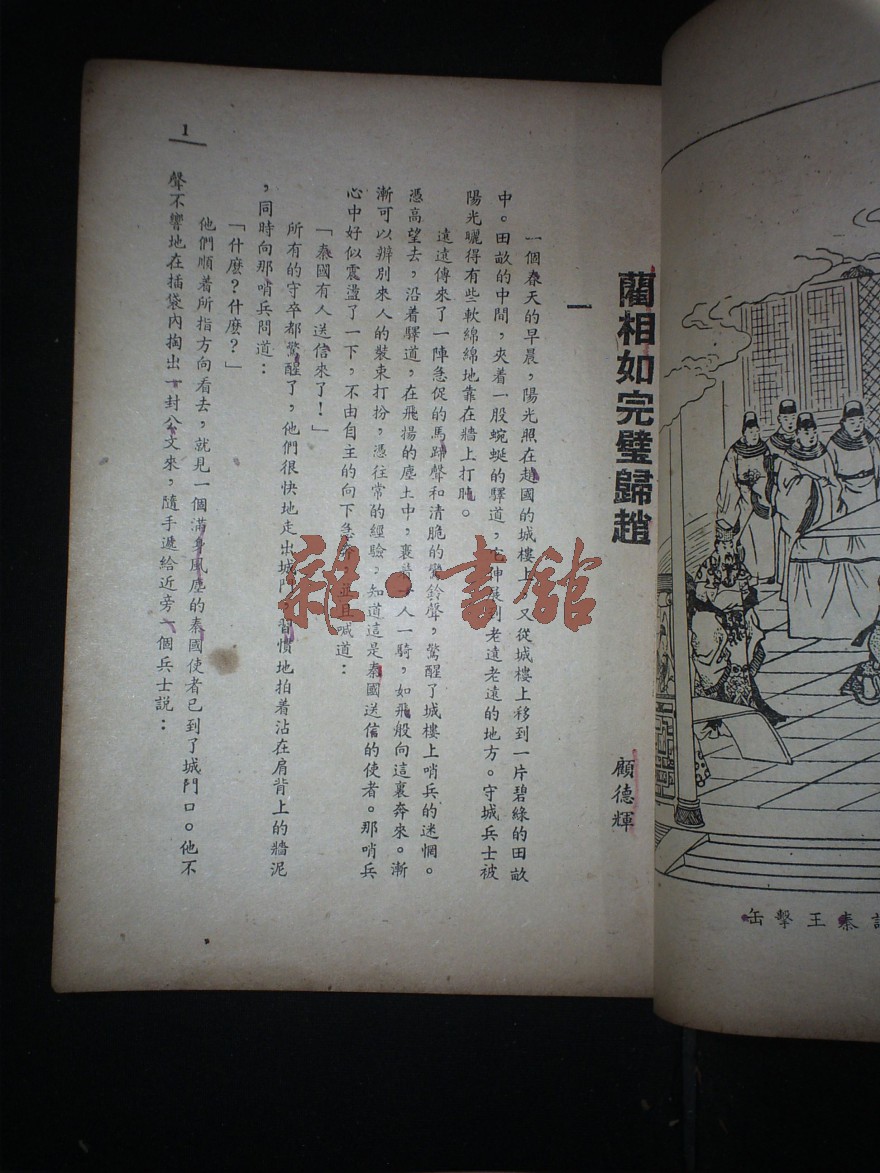 秦王擊缶
藺相如完璧歸趙
顧德輝
一
一個春天的早晨，陽光照在趙國的城樓上，又從城樓上移到一片碧綠的田畝
中。田畝的中間，夾着一股蜿蜒的驛道，它伸展到老遠老遠的地方。守城兵士被
陽光曬得有些軟綿綿地靠在牆上打盹。
遠遠傳來了一陣急促的馬蹄聲和清脆的鸞鈴聲，驚醒了城樓上哨兵的迷惘。
憑高望去，沿着驛道，在飛揚的塵土中，裹着一人一騎，如飛般向這裏奔來。漸
漸可以辨別來人的裝束打扮，憑往常的經驗，知道這是秦國送信的使者。那哨兵
心中好似震盪了一下，不由自主的向下急奔，並且喊道：
「秦國有人送信來了！」
所有的守卒都驚醒了，他們很快地走出城門，習慣地拍着沾在肩背上的牆泥
，同時向那哨兵問道：
「什麽？什麽？」
他們順着所指方向看去，就見一個滿身風塵的秦國使者已到了城門口。他不
聲不響地在插袋內掏出一封公文來，隨手遞給近旁一個兵士説：
1
雜·書館